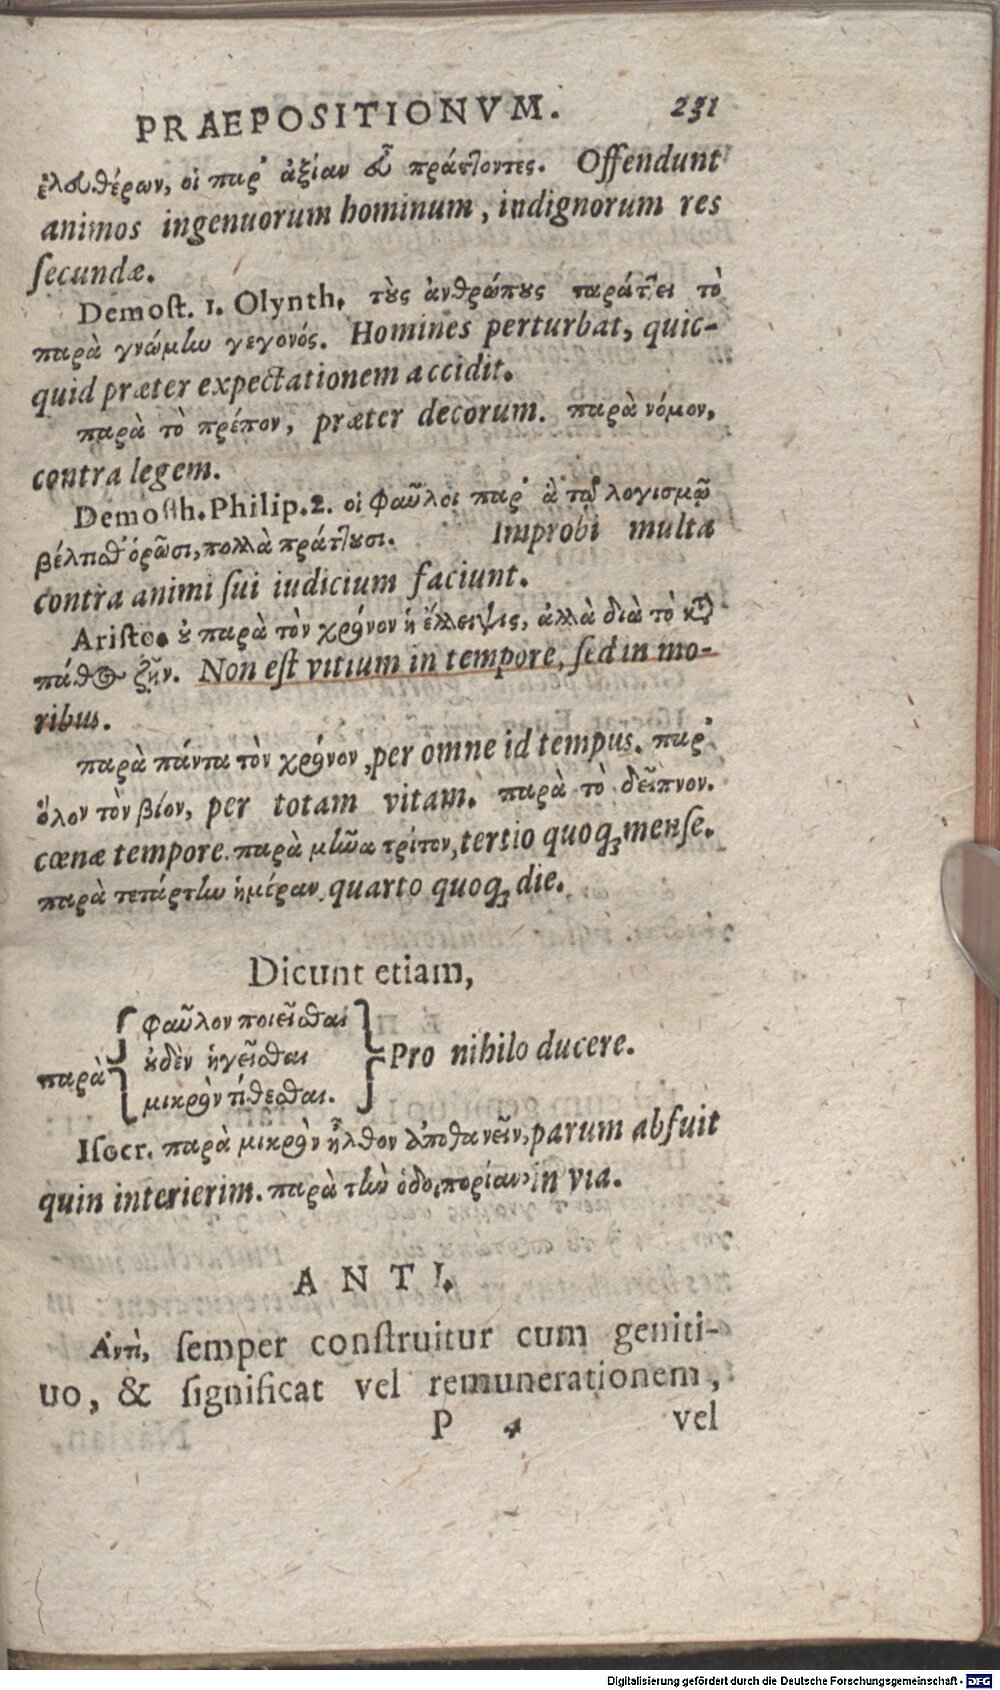 PRAEPOSITIONVM. 231
ἐλευθέρων, οἱ παρ' ἀξίαν εὖ πράττοντες. Offendunt
animos ingenuorum hominum, indignorum res
ſecundæ.
Demoſt. 1. Olynth. τοὺς ἀνθρώπους ταράττει τὸ
παρὰ γνώμην γεγονός. Homines perturbat, quic-
quid præter expectationem accidit.
παρὰ τὸ πρέπον, præter decorum. παρὰ νόμον,
contra legem.
Demoſth. Philip. 2. οἱ φαῦλοι παρ' ἃ τῷ λογισμῷ
βέλτισθ' ὁρῶσι, πολλὰ πράττουσι. Improbi multa
contra animi ſui iudicium faciunt.
Ariſto. οὐ παρὰ τὸν χρόνον ἡ ἔλλειψις, ἀλλὰ διὰ τὸ κατὰ
πάθος ζῆν. Non eſt vitium in tempore, ſed in mo-
ribus.
παρὰ πάντα τὸν χρόνον, per omne id tempus. παρ'
ὅλον τὸν βίον, per totam vitam. παρὰ τὸ δεῖπνον.
cœnæ tempore. παρὰ μῆνα τρίτον, tertio quoq; menſe.
παρὰ τετάρτην ἡμέραν, quarto quoq; die.
Dicunt etiam,
παρὰ { φαῦλον ποιεῖσθαι
οὐδὲν ἡγεῖσθαι
μικρὸν τίθεσθαι. } Pro nihilo ducere.
Iſocr. παρὰ μικρὸν ἦλθον ἀποθανεῖν, parum abfuit
quin interierim. παρὰ τὴν ὁδοιπορίαν, in via.
ANTI.
Ἀντὶ, ſemper conſtruitur cum geniti-
uo, & ſignificat vel remunerationem,
P 4 vel
Digitalisierung gefördert durch die Deutsche Forschungsgemeinschaft - DFG